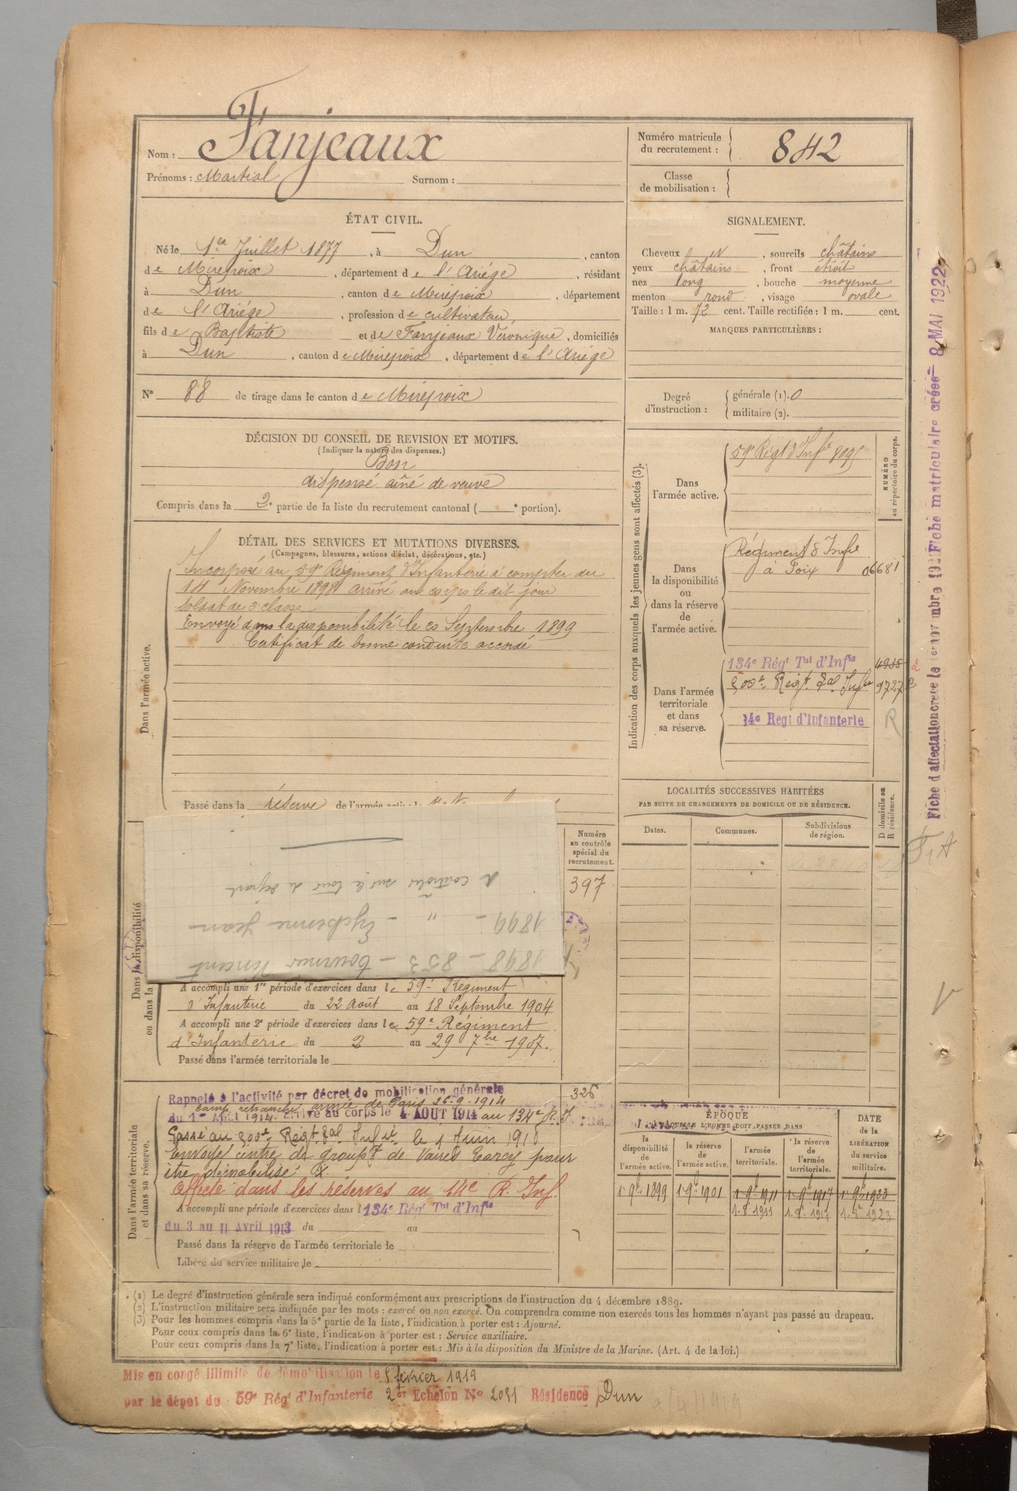 Nom : Fanjeaux
Prénoms : Martial Surnom :
Numéro matricule du recrutement : 842
Classe de mobilisation :
ÉTAT CIVIL.
Né le 1er Juillet 1877, à Dun, canton
de Mirepoix, département de l'Ariége, résidant
à Dun, canton de Mirepoix, département
de l'Ariége, profession de cultivateur,
fils de Baptiste et de Fanjeaux Véronique, domiciliés
à Dun, canton de Mirepoix, département de l'Ariége
N° 88 de tirage dans le canton de Mirepoix
SIGNALEMENT.
Cheveux N, sourcils châtains
yeux châtains, front étroit
nez long, bouche moyenne
menton rond, visage ovale
Taille : 1 m. 72 cent. Taille rectifiée : 1 m. cent.
MARQUES PARTICULIÈRES :
Degré d'instruction : générale (1). 0
militaire (2).
DÉCISION DU CONSEIL DE REVISION ET MOTIFS.
(Indiquer la nature des dispenses.)
Bon
dispensé aîné de veuve
Compris dans la 2e partie de la liste du recrutement cantonal ( e portion).
DÉTAIL DES SERVICES ET MUTATIONS DIVERSES.
(Campagnes, blessures, actions d'éclat, décorations, etc.)
Dans l'armée active.
Incorporé au 59e Régiment d'Infanterie à compter du
14 Novembre 1898 arrivé au corps le dit jour
soldat de 2e classe
Envoyé dans la disponibilité le 20 Septembre 1899
Certificat de bonne conduite accordé
Passé dans la réserve de l'armée active
Indication des corps auxquels les jeunes gens sont affectés (3).
NUMÉRO au répertoire du corps.
Dans l'armée active.
59e Régt d'Infie
Dans la disponibilité ou dans la réserve de l'armée active.
Régiment d'Infie
à Foix 06681
Dans l'armée territoriale et dans sa réserve.
134e Régt Tal d'Infie
209e Régt Tal Infie 9727
14e Régt d'Infanterie
R
LOCALITÉS SUCCESSIVES HABITÉES
PAR SUITE DE CHANGEMENTS DE DOMICILE OU DE RÉSIDENCE.
Dates. Communes. Subdivisions de région. D domicile ou R résidence.
Dans la disponibilité ou dans la
Numéro au contrôle spécial du recrutement.
397
à contrôler sur le tour de départ
1899 - " - Eychenne Jean
1898 - 853 - Tournier Vincent
A accompli une 1re période d'exercices dans le 59e Régiment
d'Infanterie du 22 août au 18 Septembre 1904
A accompli une 2e période d'exercices dans le 59e Régiment
d'Infanterie du 2 au 29 7bre 1907.
Passé dans l'armée territoriale le
Dans l'armée territoriale et dans sa réserve.
326
Rappelé à l'activité par décret de mobilisation générale
Camp retranché armée de Paris 26-9-1914
du 1er Août 1914. Arrivé au corps le 4 AOUT 1914 au 134e R.I.
Passé au 209e Régt Tal Infie le 1 Juin 1918
Envoyé centre de groupt de Vaires Torcy pour
être démobilisé.
Affecté dans les réserves au 14e R. Inf.
A accompli une période d'exercices dans le 134e Régt Tal d'Infie
du 3 au 11 Avril 1913 du au
Passé dans la réserve de l'armée territoriale le
Libéré du service militaire le
ÉPOQUE
À LAQUELLE L'HOMME DOIT PASSER DANS
la disponibilité de l'armée active. la réserve de l'armée active. l'armée territoriale. la réserve de l'armée territoriale.
DATE de la LIBÉRATION du service militaire.
1-9bre 1899 1-9bre 1901 1-9bre 1911 1-9bre 1917 1-9bre 1923
(1) Le degré d'instruction générale sera indiqué conformément aux prescriptions de l'instruction du 4 décembre 1889.
(2) L'instruction militaire sera indiquée par les mots : exercé ou non exercé. On comprendra comme non exercés tous les hommes n'ayant pas passé au drapeau.
(3) Pour les hommes compris dans la 5e partie de la liste, l'indication à porter est : Ajourné.
Pour ceux compris dans la 6e liste, l'indication à porter est : Service auxiliaire.
Pour ceux compris dans la 7e liste, l'indication à porter est : Mis à la disposition du Ministre de la Marine. (Art. 4 de la loi.)
Mis en congé illimité de démobilisation le 8 février 1919
par le dépot du 59e Régt d'Infanterie 2e Echelon N° 2031 Résidence Dun
Fiche matriculaire créée 8 MAI 1922